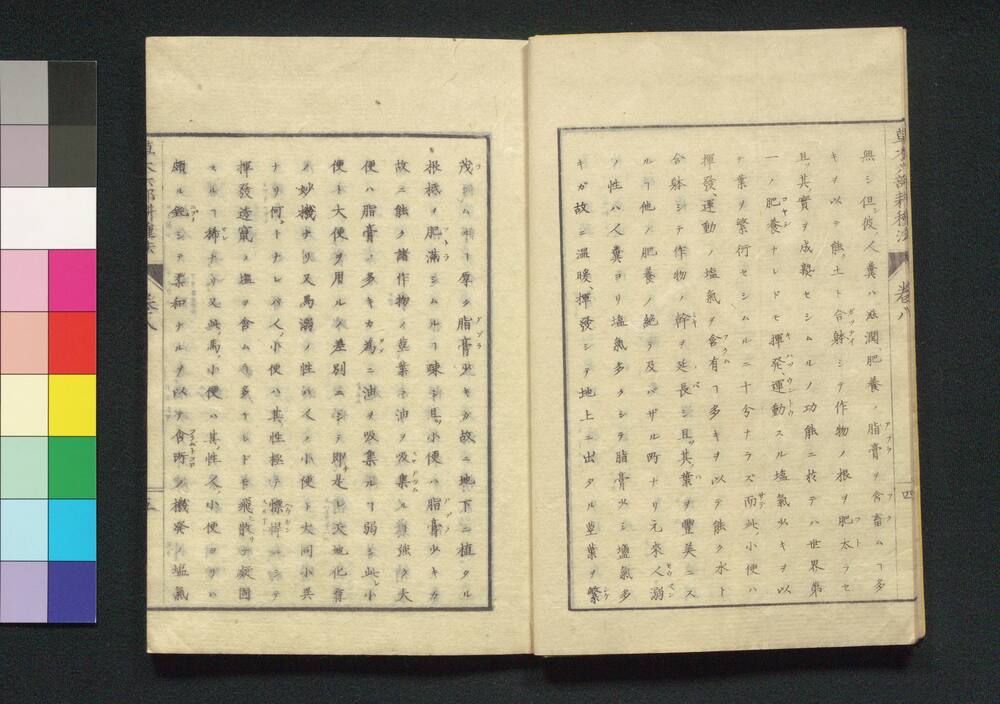 草木六部耕種法 卷八 四
無シ但シ彼人糞ハ滋潤、肥養ノ脂膏ヲ含畜ムヿ多
キヲ以テ能ク土ト合躰シテ作物ノ根ヲ肥太ラセ
且ッ其實ヲ成熟セシムルノ功能ニ於テハ世界第
一ノ肥養ナレドモ揮発、運動スル塩氣少キヲ以
テ葉ヲ繁衍セシムルニ十分ナラズ而此小便ハ
揮發、運動ノ塩氣ヲ含有ヿ多キヲ以テ能ク水ト
合躰シテ作物ノ幹ヲ延長シ且ッ其葉ヲ豐美ニス
ルヿ他ノ肥養ノ絶テ及バザル所ナリ元來人溺
ノ性ハ人糞ヨリ塩氣多クシテ脂膏少シ塩氣多
キガ故ニ温暖、揮發シテ地上ニ出タル莖葉ヲ繁
茂シム脂膏少キガ故ニ地下ニ植タル
根柢ヲ肥滿シムルヿ疎シ且ッ小便ハ脂膏少キガ
故ニ能ク諸作物ノ莖葉ニ油ヲ吸集ルヿ強ク大
便ハ脂膏ノ多キカ為ニ油ヲ吸集ルヿ弱シ此レ小
便ト大便ヲ用ル差別ニシテ即是レ天地化育
ノ妙機ナリ又馬溺ノ性ハ人ノ小便ト大同小異
ナリ何トナレバ人ノ小便ハ其性極テ慓悍ニシテ
揮發造竄ノ塩ヲ含ムヿ多ケレドモ飛散テ凝固
スルヿ稀ナリ又此馬ノ小便ハ其性又小便ヨリハ
頗ル鈍シテ柔和ナルヲ以テ含所ノ機發塩氣
卷八 五